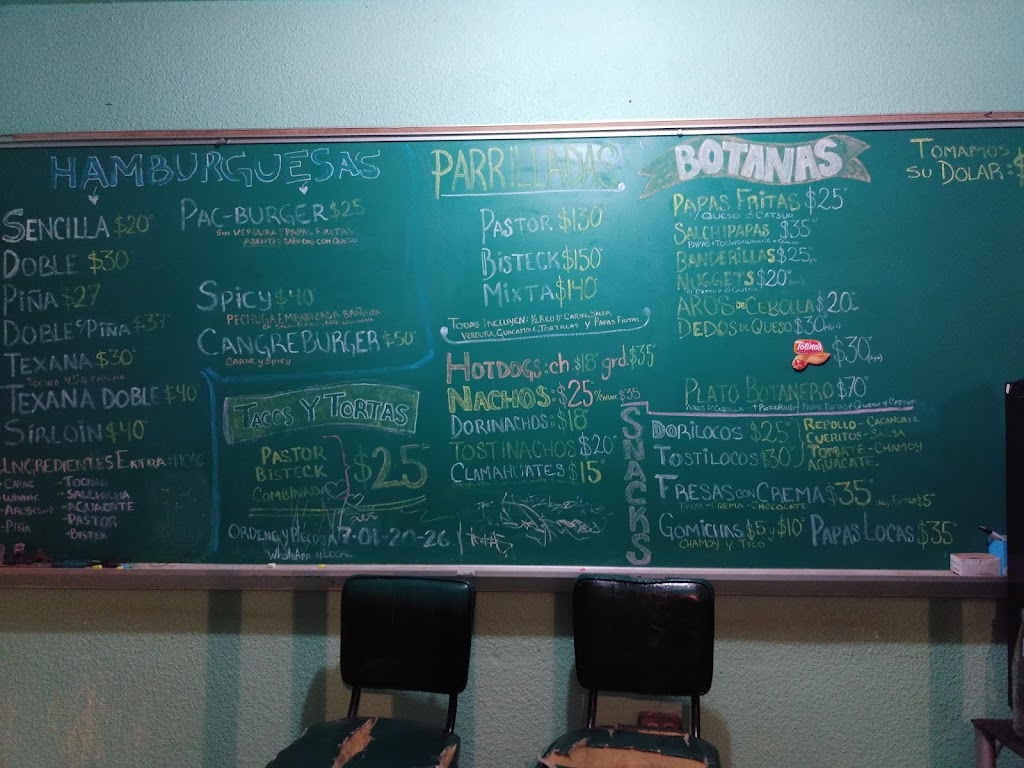 HAMBURGUESAS
SENCILLA $20
DOBLE $30
PIÑA $27
DOBLE C/PIÑA $37
TEXANA $30
TOCINO Y SALCHICHA
TEXANA DOBLE $40
SIRLOIN $40
INGREDIENTES EXTRA:
-CARNE
-WINNIE
-PIÑA
-TOCINO
-SALCHICHA
-AGUACATE
-PASTOR
-BISTEK
PAC-BURGER $25
SIN VERDURA Y PAPAS FRITAS
ADENTRO BAÑADAS CON QUESO
SPICY $40
PECHUGA EMPANIZADA BAÑADA
CANGREBURGER $50
CARNE Y SPICY
TACOS Y TORTAS
PASTOR
BISTECK
COMBINADA
$25
ORDENE Y PREGUNTE
7-01-20-26
WHATSAPP Y LOCAL
PARRILLADAS
PASTOR $130
BISTECK $150
MIXTA $140
TODAS INCLUYEN: ½ KILO D' CARNE, SALSA,
VERDURA, GUACAMOLE, TORTILLAS Y PAPAS FRITAS.
HOTDOGS: CH. $18 GRD. $35
NACHOS: $25 $35
DORINACHOS: $18
TOSTINACHOS $20
CLAMAHUATES $15
BOTANAS
PAPAS FRITAS $25
Y QUESO Ó CATSUP
SALCHIPAPAS $35
BANDERILLAS $25
NUGGETS $20
AROS DE CEBOLLA $20
DEDOS DE QUESO $30
Totino's $30
PLATO BOTANERO $70
AROS D'CEBOLLA + PIZZA ROLLS + PAPAS FRITAS + QUESO Y CATSUP
SNACKS
DORILOCOS $25
TOSTILOCOS $30
REPOLLO - CACAHUATE
CUERITOS - SALSA
TOMATE - CHAMOY
AGUACATE.
FRESAS CON CREMA $35 ING. EXTRA $5
FRESA - CREMA - CHOCOLATE
GOMICHAS $5 y $10
CHAMOY Y TICO
PAPAS LOCAS $35
TOMAMOS
SU DOLAR: $